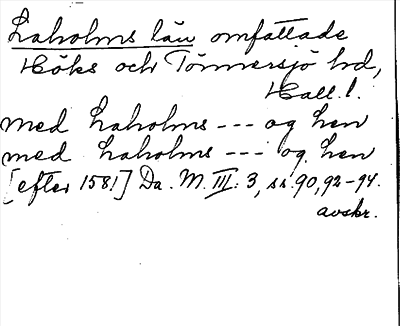 Laholms län omfattade
Höks och Tönnersjö hd,
Hall. l.
med Laholms --- og hen
med Laholms --- og hen
[efter 1581] Da. M. III: 3, ss. 90, 92-94.
avskr.